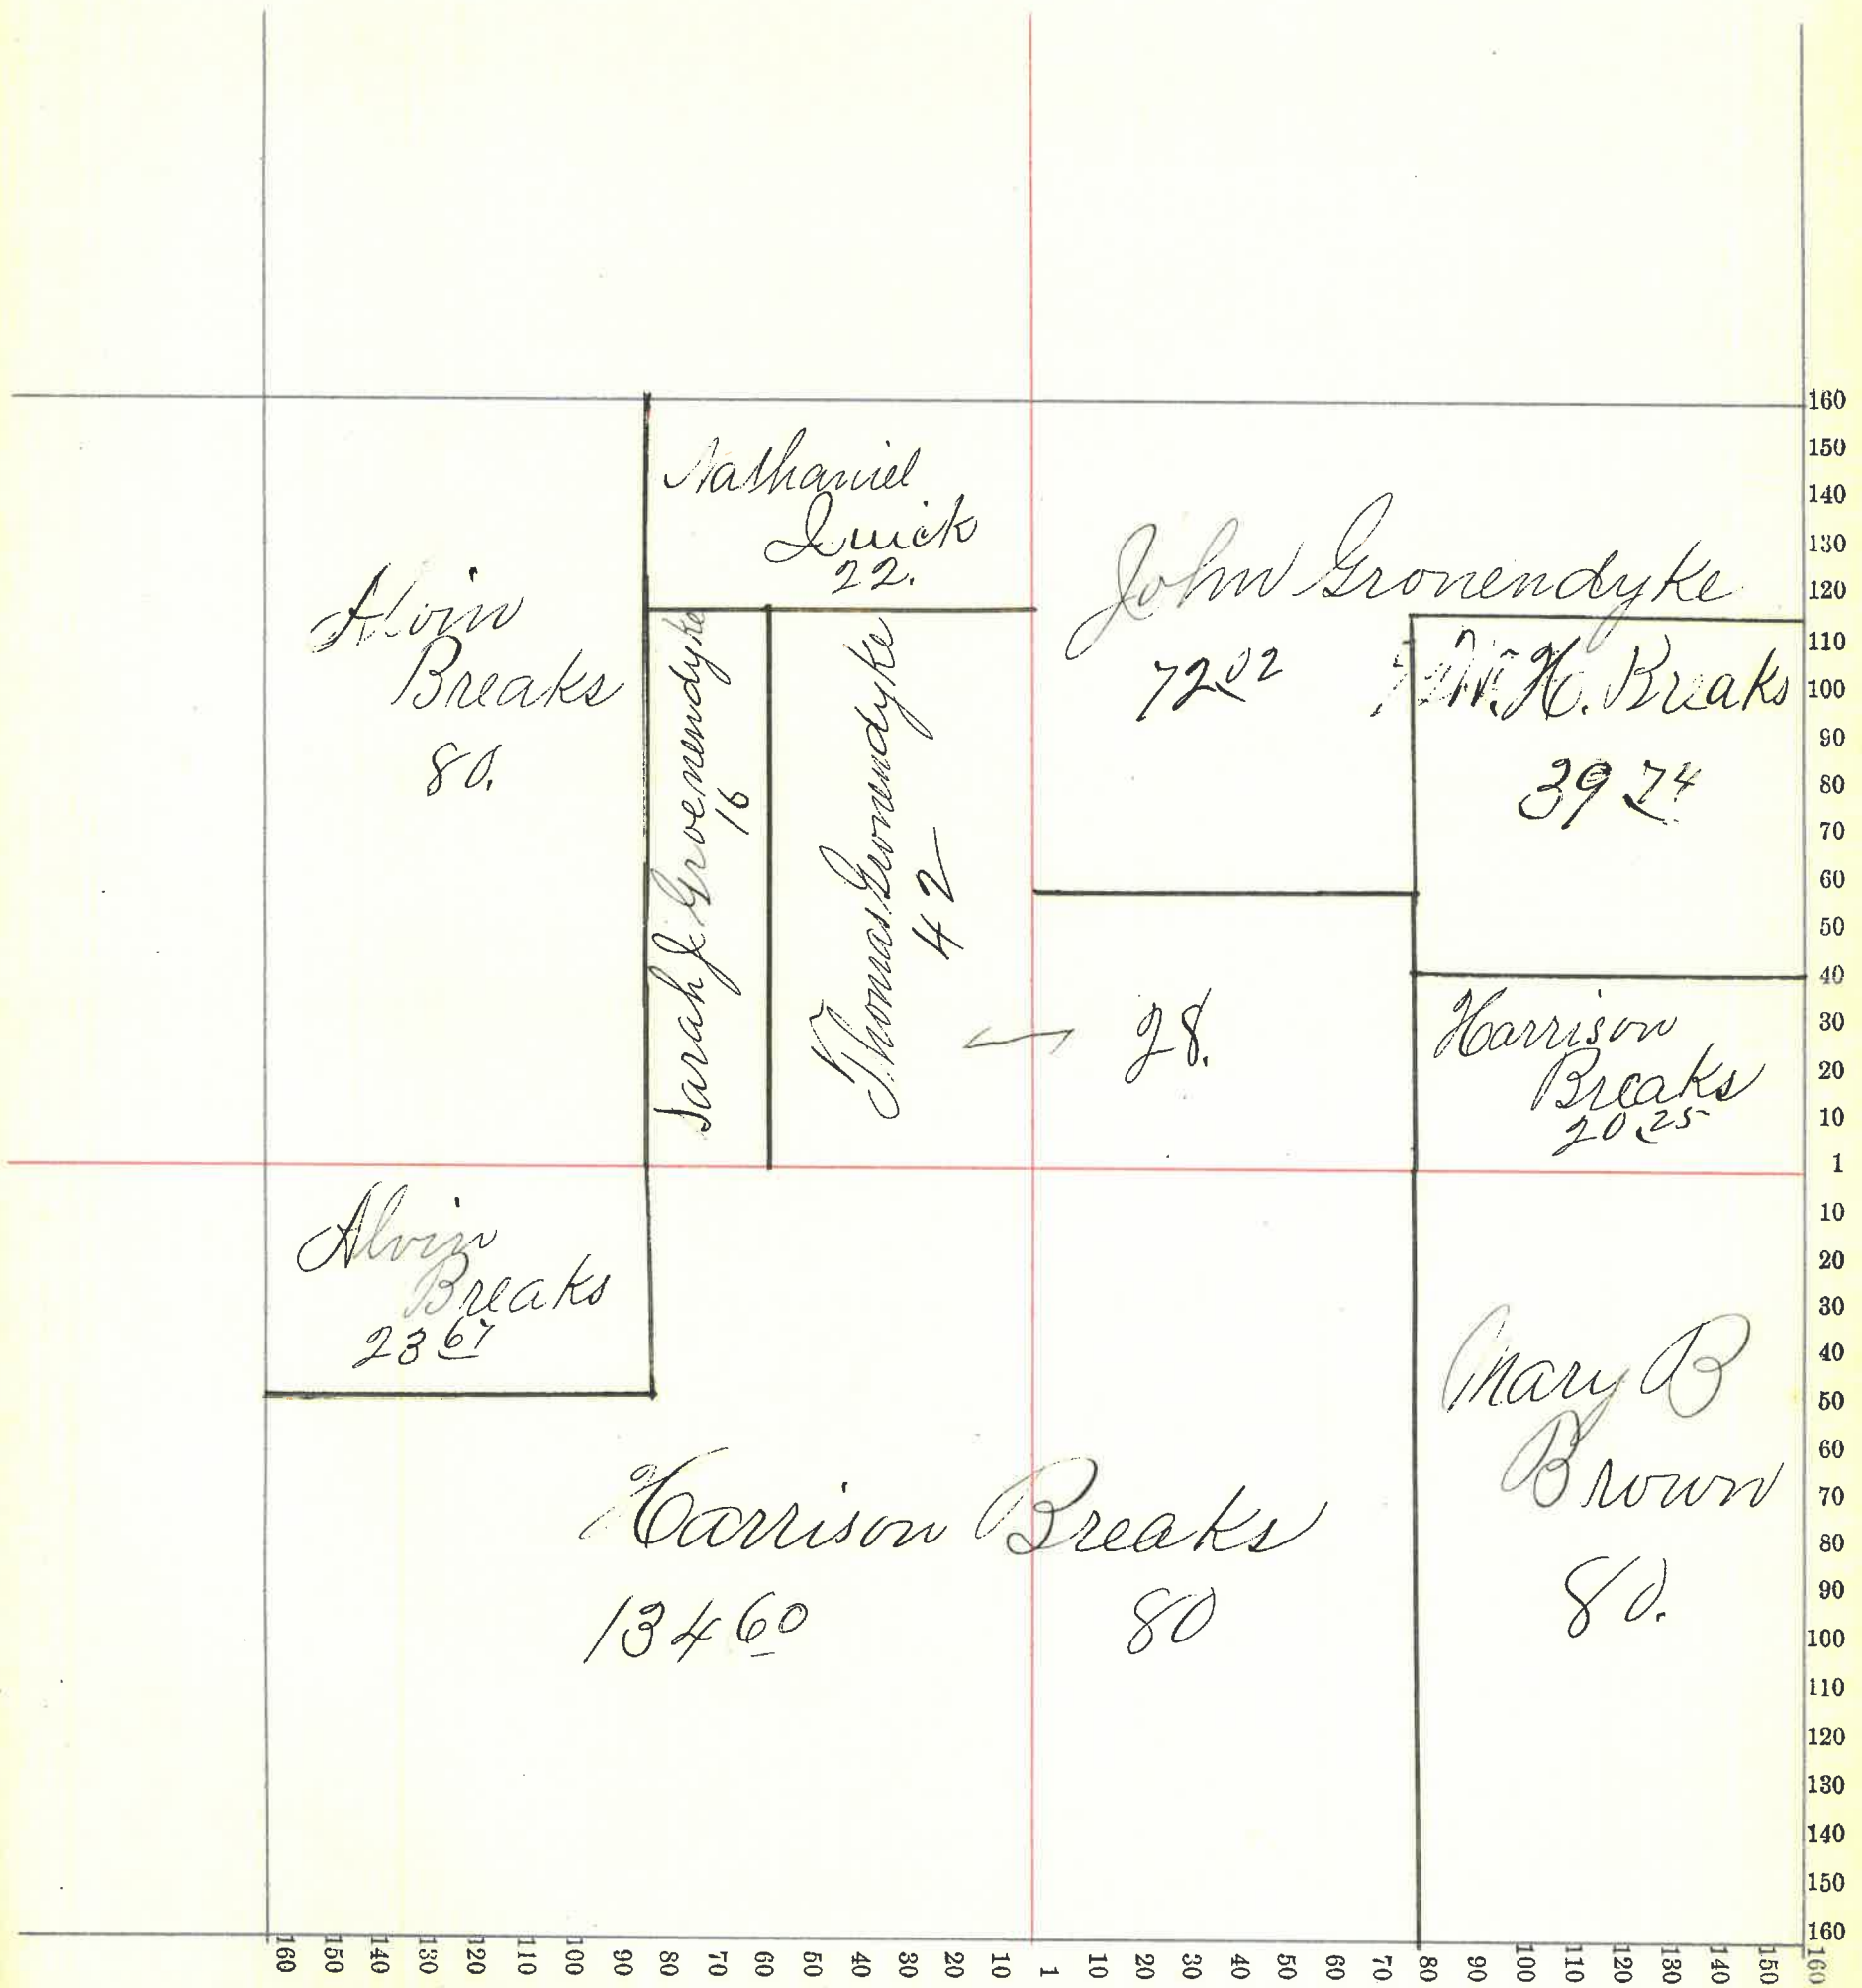 Nathaniel
Quick
22.
Alvin
Breaks
80.
Sarah J Groenendyke
16
Thomas Gronendyke
42
John Gronendyke
72 02
W. H. Breaks
39 74
28.
Harrison
Breaks
20 25
Alvin
Breaks
23 67
Harrison Breaks
134 60
80
Mary B
Brown
80.
160
150
140
130
120
110
100
90
80
70
60
50
40
30
20
10
1
10
20
30
40
50
60
70
80
90
100
110
120
130
140
150
160
160 150 140 130 120 110 100 90 80 70 60 50 40 30 20 10 1 10 20 30 40 50 60 70 80 90 100 110 120 130 140 150 160